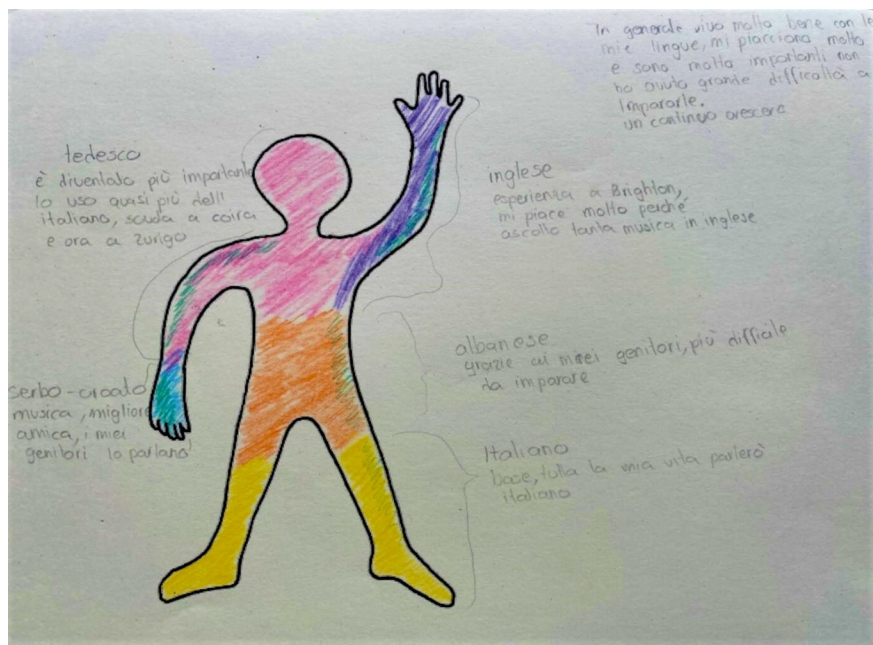 In generale vivo molto bene con le
mie lingue, mi piacciono molto
e sono molto importanti non
ho avuto grande difficoltà a
impararle.
un continuo crescere
tedesco
è diventato più importante
lo uso quasi più dell'
italiano, scuola a coira
e ora a Zurigo
inglese
esperienza a Brighton,
mi piace molto perché
ascolto tanta musica in inglese
albanese
grazie ai miei genitori, più difficile
da imparare
serbo-croato
musica, migliore
amica, i miei
genitori lo parlano
Italiano
base, tutta la mia vita parlerò
italiano